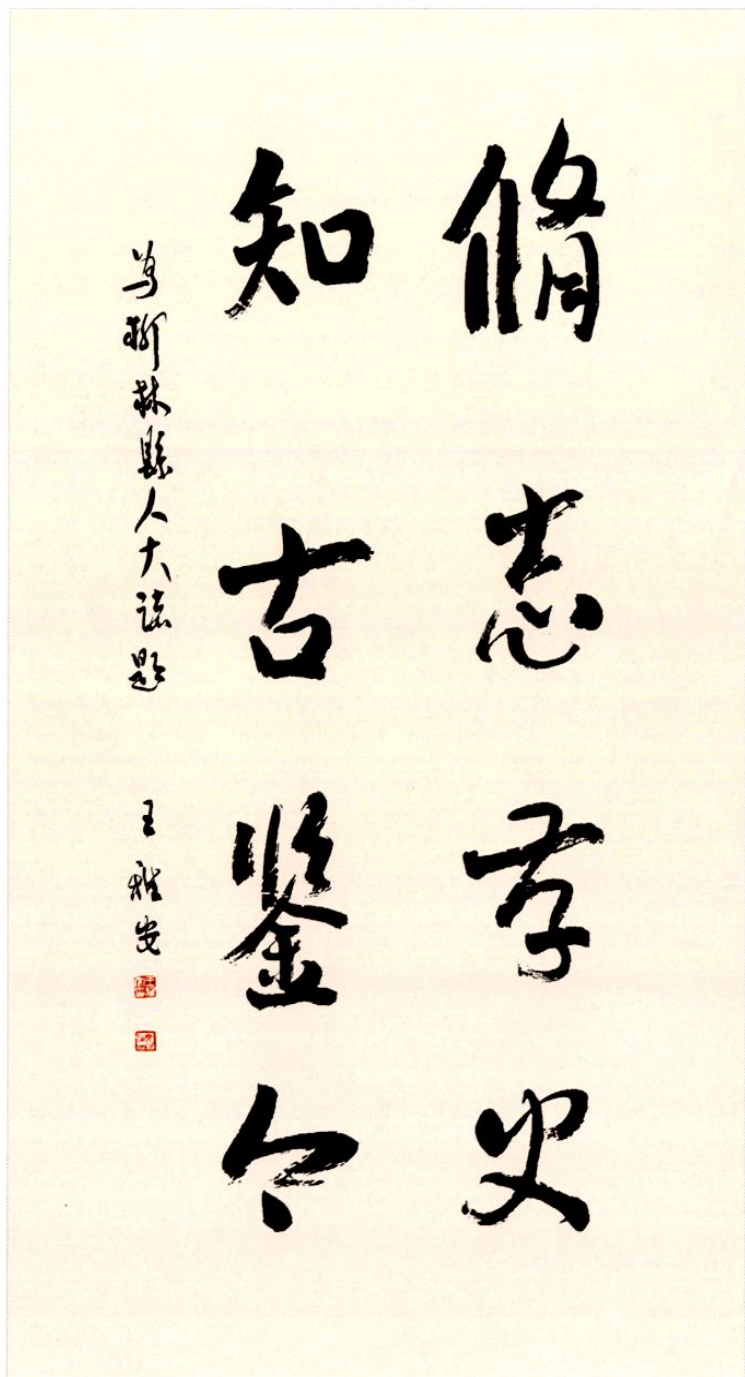 脩志存史
知古鉴今
为柳林縣人大誌題
王雅安